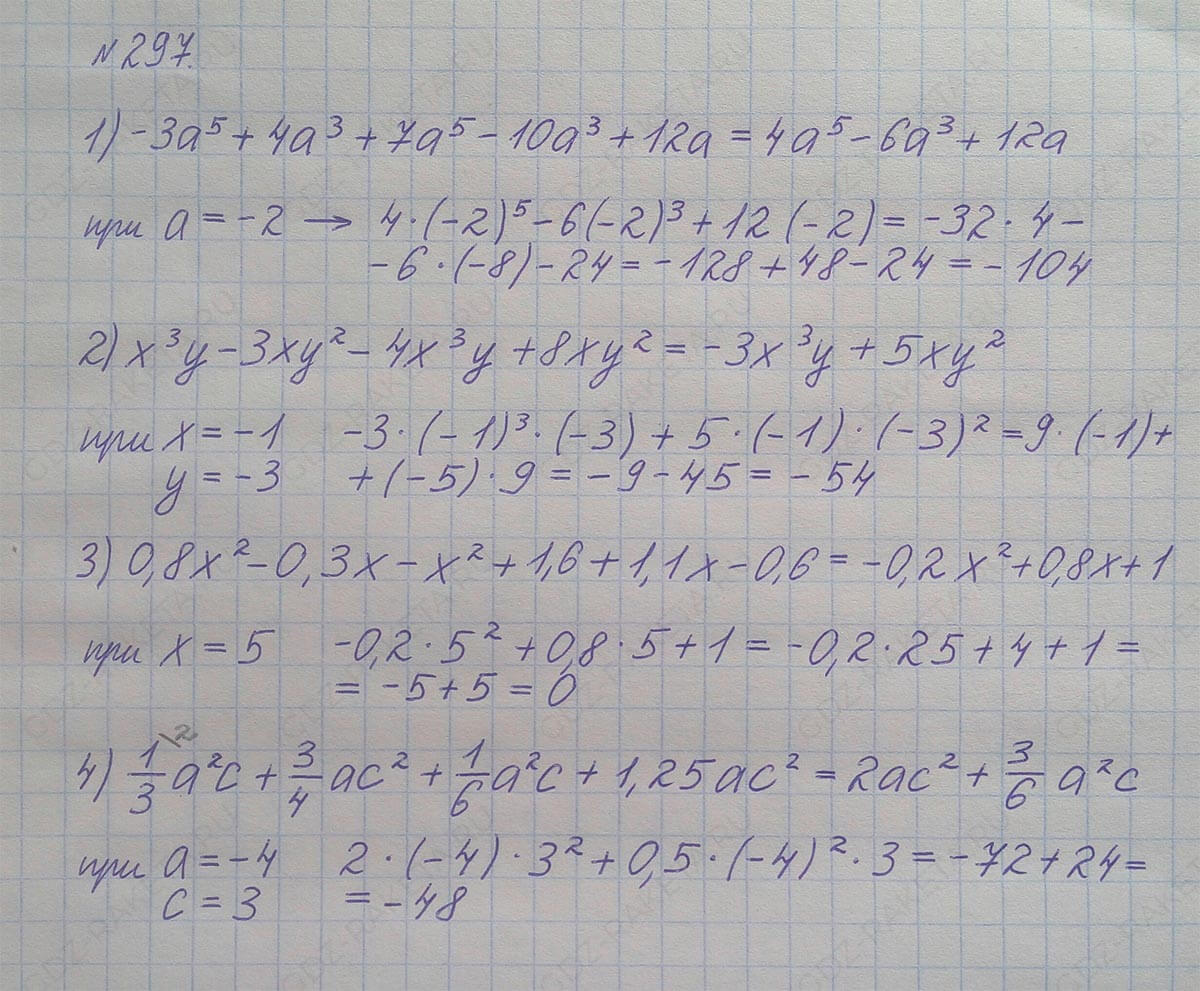 №297.
1) -3a⁵ + 4a³ + 7a⁵ - 10a³ + 12a = 4a⁵ - 6a³ + 12a
при a = -2 → 4·(-2)⁵ - 6(-2)³ + 12(-2) = -32·4 -
-6·(-8) - 24 = -128 + 48 - 24 = -104
2) x³y - 3xy² - 4x³y + 8xy² = -3x³y + 5xy²
при x = -1 -3·(-1)³·(-3) + 5·(-1)·(-3)² = 9·(-1) +
y = -3 +(-5)·9 = -9 - 45 = -54
3) 0,8x² - 0,3x - x² + 1,6 + 1,1x - 0,6 = -0,2x² + 0,8x + 1
при x = 5 -0,2·5² + 0,8·5 + 1 = -0,2·25 + 4 + 1 =
= -5 + 5 = 0
4) 1\2/3 a²c + 3/4 ac² + 1/6 a²c + 1,25ac² = 2ac² + 3/6 a²c
при a = -4 2·(-4)·3² + 0,5·(-4)²·3 = -72 + 24 =
c = 3 = -48
GDZ-RAKETA.RU